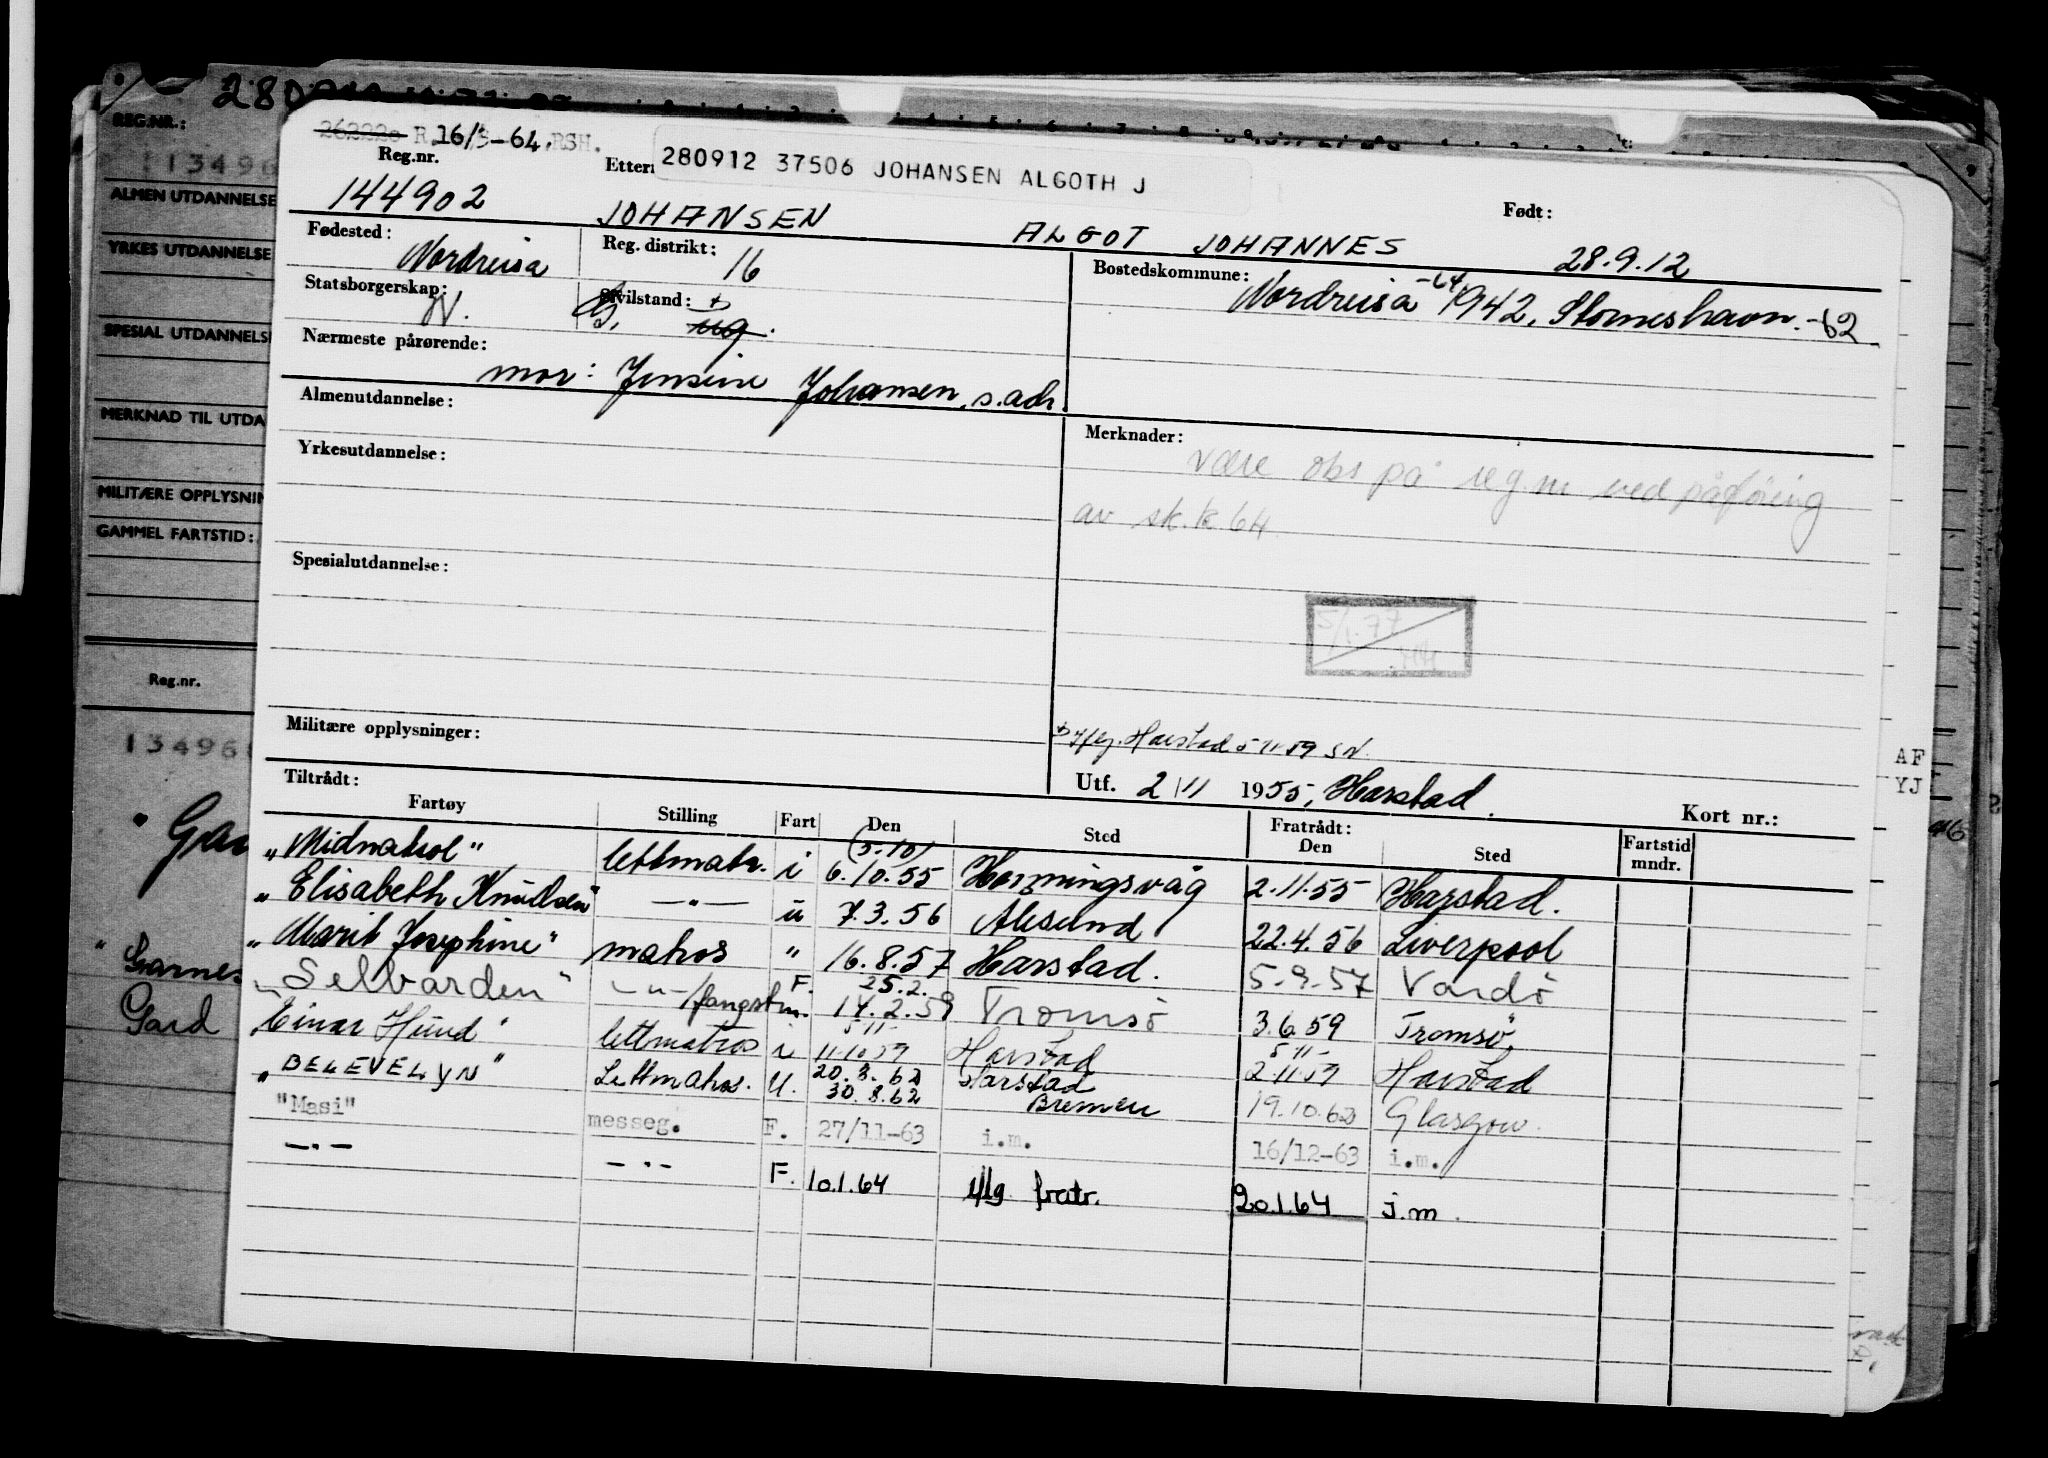 280
REG.NR.:
134968
ALMEN UTDANNELSE
YRKES UTDANNELSE
SPESIAL UTDANNELSE
MERKNAD TIL UTDA
MILITÆRE OPPLYSNIN
GAMMEL FARTSTID:
Reg.nr.
134968
Garnes
Gard
262220 R.16/3-64.RSH.
Reg.nr.
Ettern
280912 37506 JOHANSEN ALGOTH J
Født:
144902 JOHANSEN ALGOT JOHANNES 28.9.12
Fødested: Nordreisa
Reg. distrikt: 16
Bostedskommune: Nordreisa -64 1942, Storneshavn.-62
Statsborgerskap: N.
Sivilstand: G. ug.
Nærmeste pårørende:
mor: Jensine Johansen, s.adr.
Almenutdannelse:
Merknader:
være obs på reg.nr ved påføring
av sk.k. 64
Yrkesutdannelse:
Spesialutdannelse:
5/1.77
Militære opplysninger:
Harstad 5-11-59 SN.
Utf. 2/11 1955, Harstad.
Kort nr.:
AF
YJ
Tiltrådt:
Fratrådt:
Fartøy Stilling Fart Den Sted Den Sted Fartstid mndr.
"Midnatsol" lettmatr. i (5.10) 6.10.55 Honningsvåg 2.11.55 Harstad.
"Elisabeth Knudsen" —"— u 7.3.56 Ålesund 22.4.56 Liverpool
"Marit Josephine" matros " 16.8.57 Harstad. 5-9-57 Vardö
"Selbarden" —"—/fangstm. F. 25.2. 14.2.59 Tromsö 3.6.59 Tromsö
"Einar Hund" lettmatros i 5-11- 11-10-59 Harstad 5-11- 2-11-59 Harstad
"BELEVELYN" Lettmatros. U. 20.3.62 Harstad
30.8.62 Bremen 19.10.62 Glasgow.
"Masi" messeg. F. 27/11-63 i.m. 16/12-63 i.m.
—"— —"— F. 10.1.64 fratr. 20.1.64 i.m.